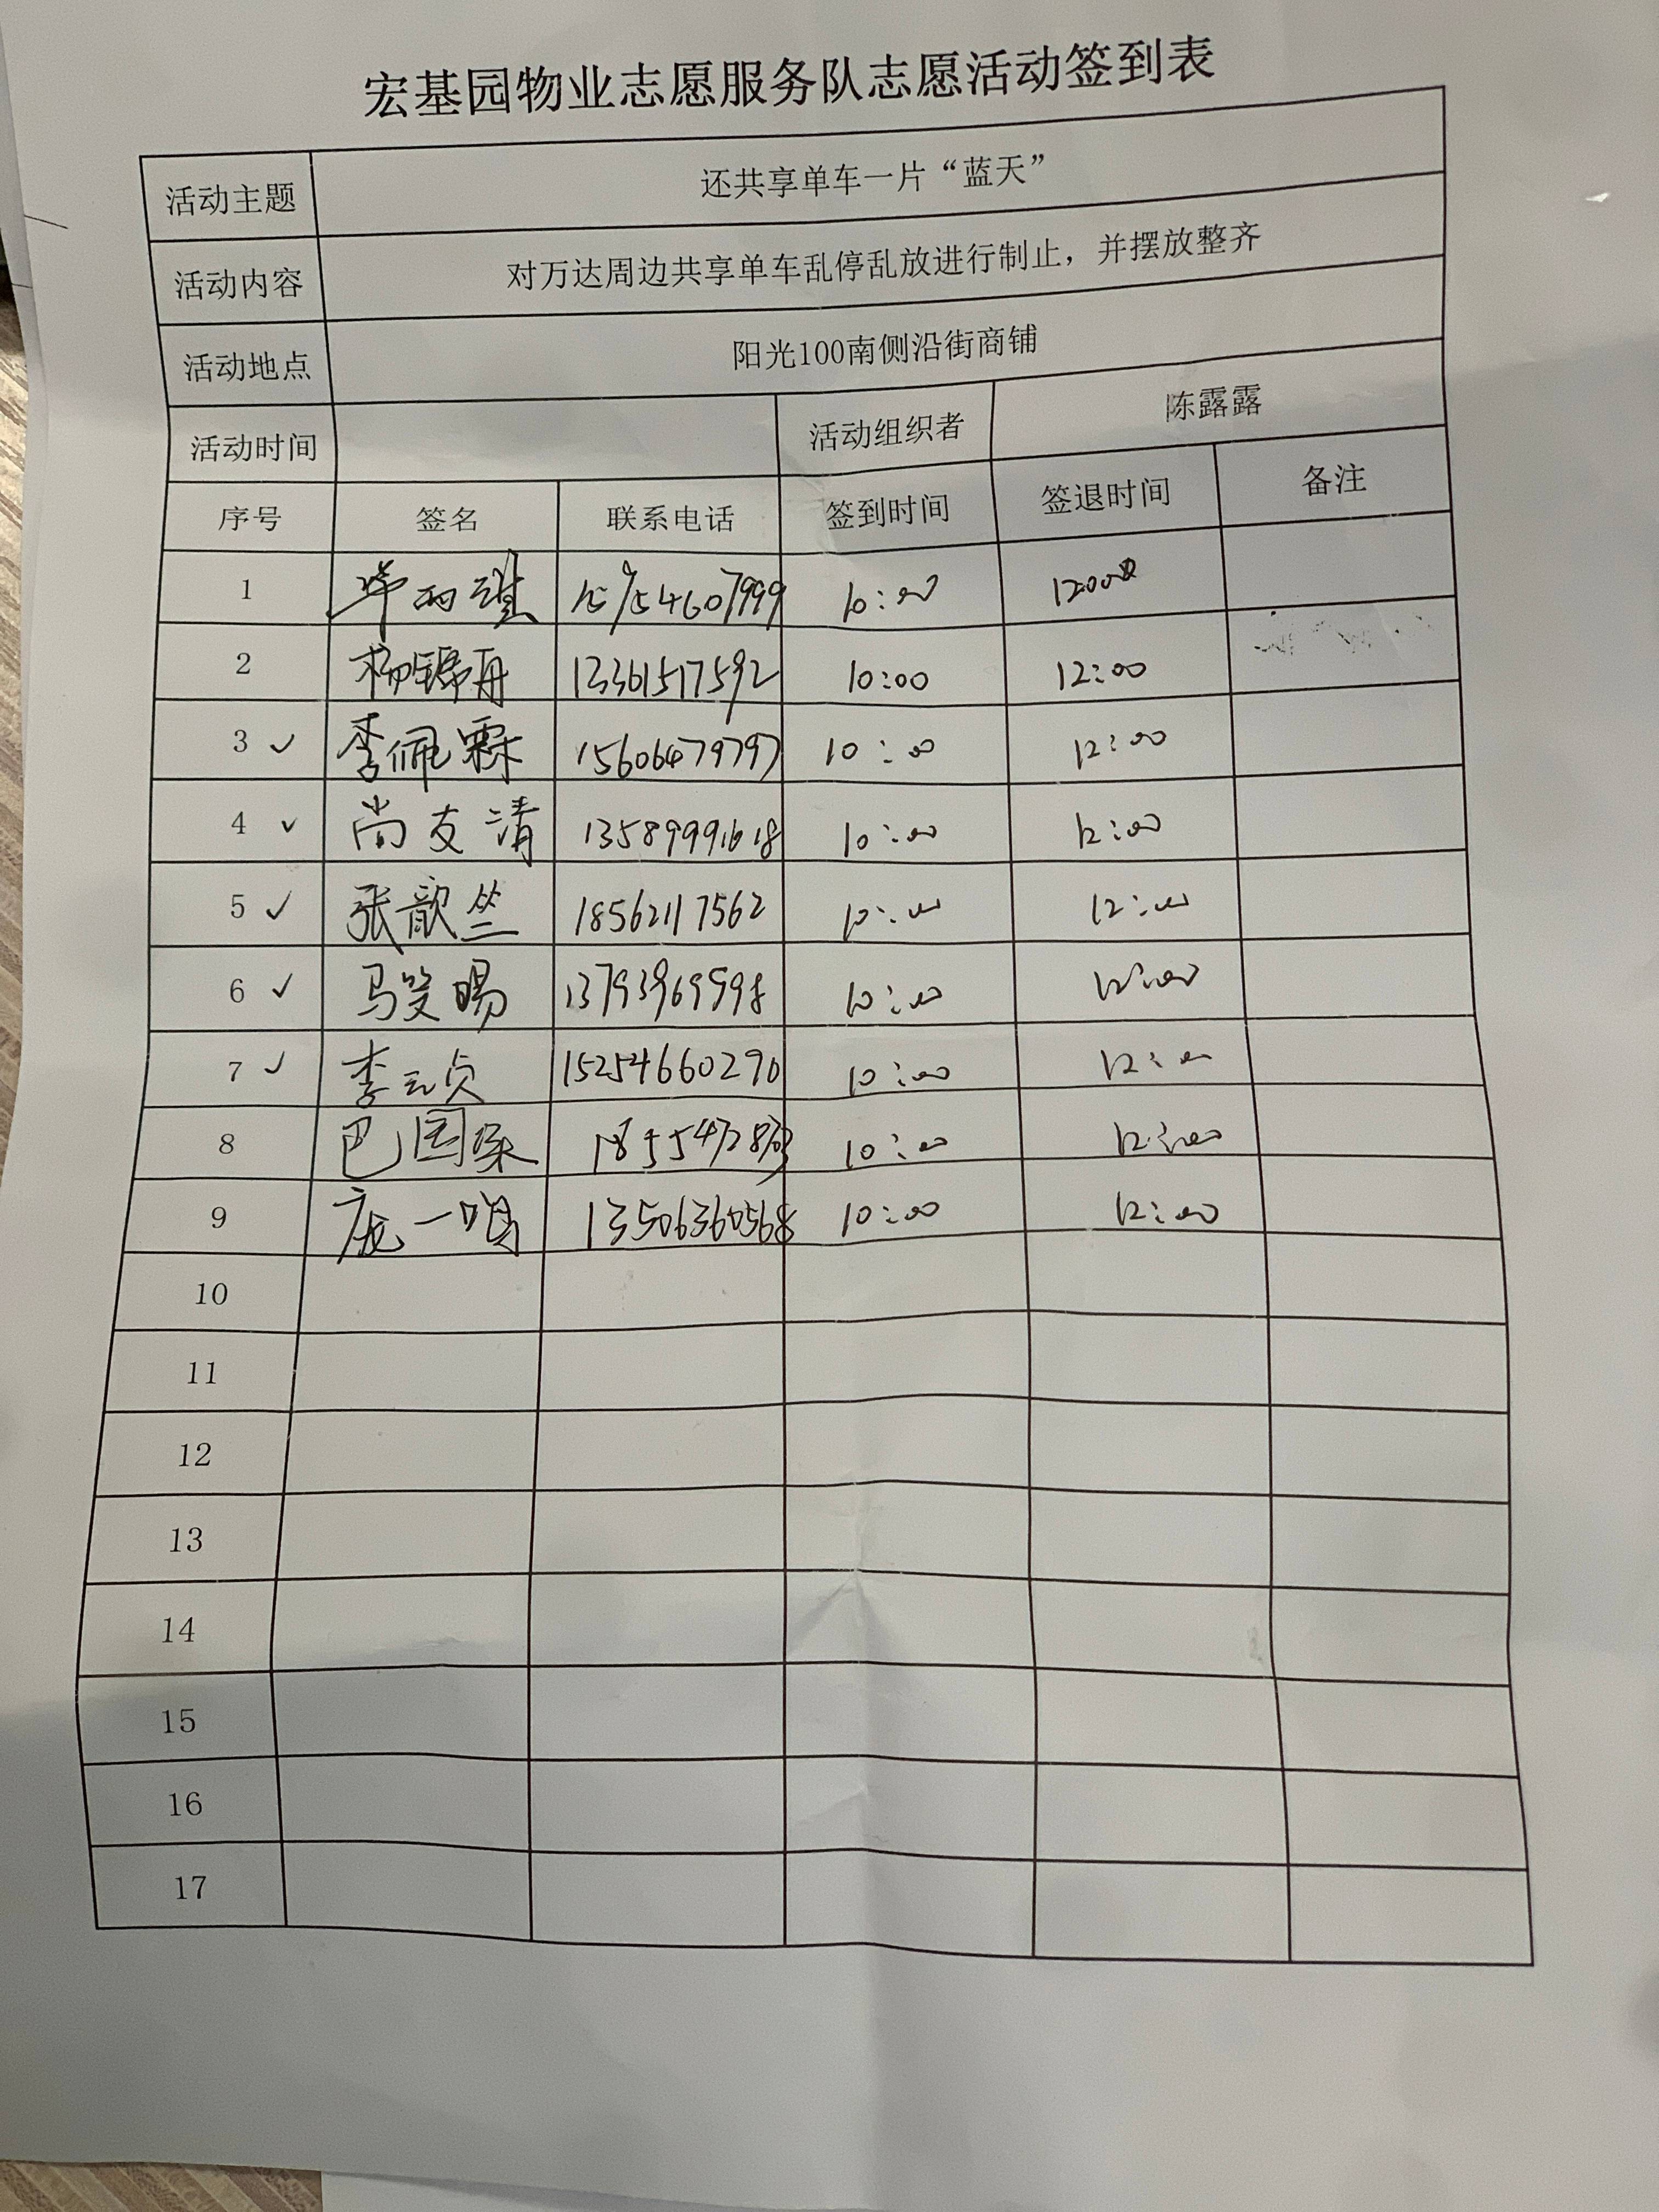 宏基园物业志愿服务队志愿活动签到表
活动主题 还共享单车一片“蓝天”
活动内容 对万达周边共享单车乱停乱放进行制止，并摆放整齐
活动地点 阳光100南侧沿街商铺
活动时间 活动组织者 陈露露
序号 签名 联系电话 签到时间 签退时间 备注
1 10:00
2 13361517592 10:00 12:00
3 ✓ 李佩霖 15606479797 10:00 12:00
4 ✓ 尚友清 13589991618 10:00 12:00
5 ✓ 张歆竺 18562117562 10:00 12:00
6 ✓ 马笑旸 10:00 12:00
7 ✓ 李元贞 15254660290 10:00 12:00
8 10:00 12:00
9 庞一鸣 13506360568 10:00 12:00
10
11
12
13
14
15
16
17